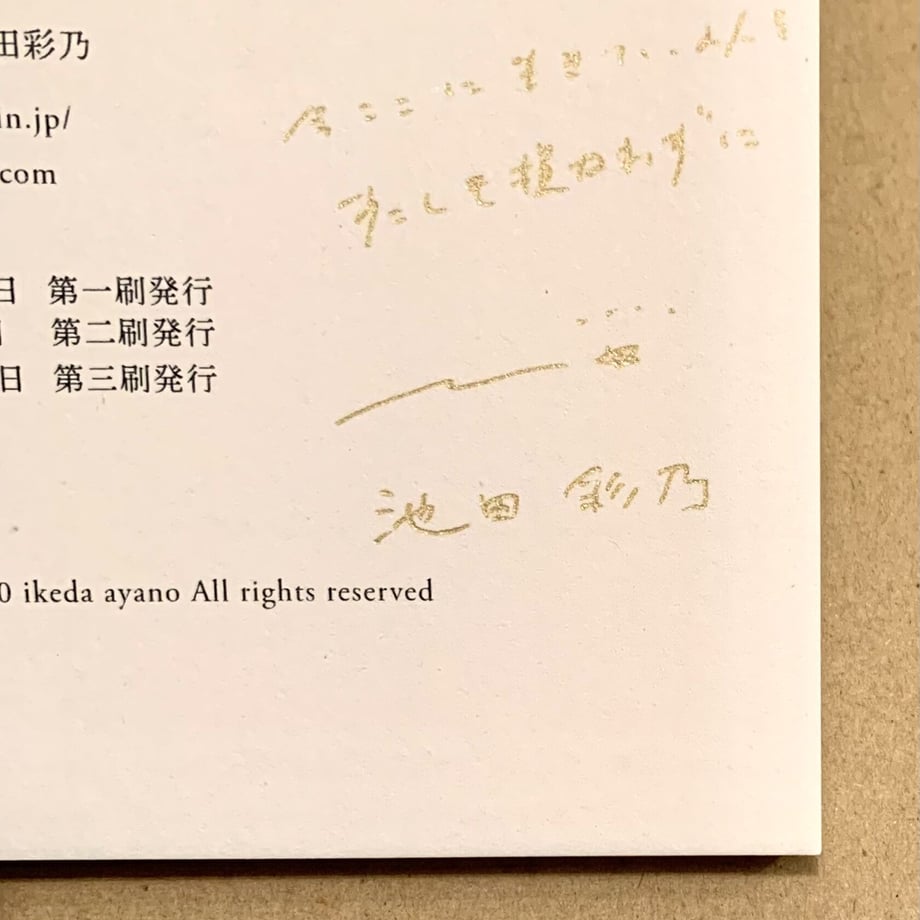 田彩乃
in.jp/
com
今ここに
すこしも損なわずに
日 第一刷発行
第二刷発行
日 第三刷発行
池田 彩乃
0 ikeda ayano All rights reserved